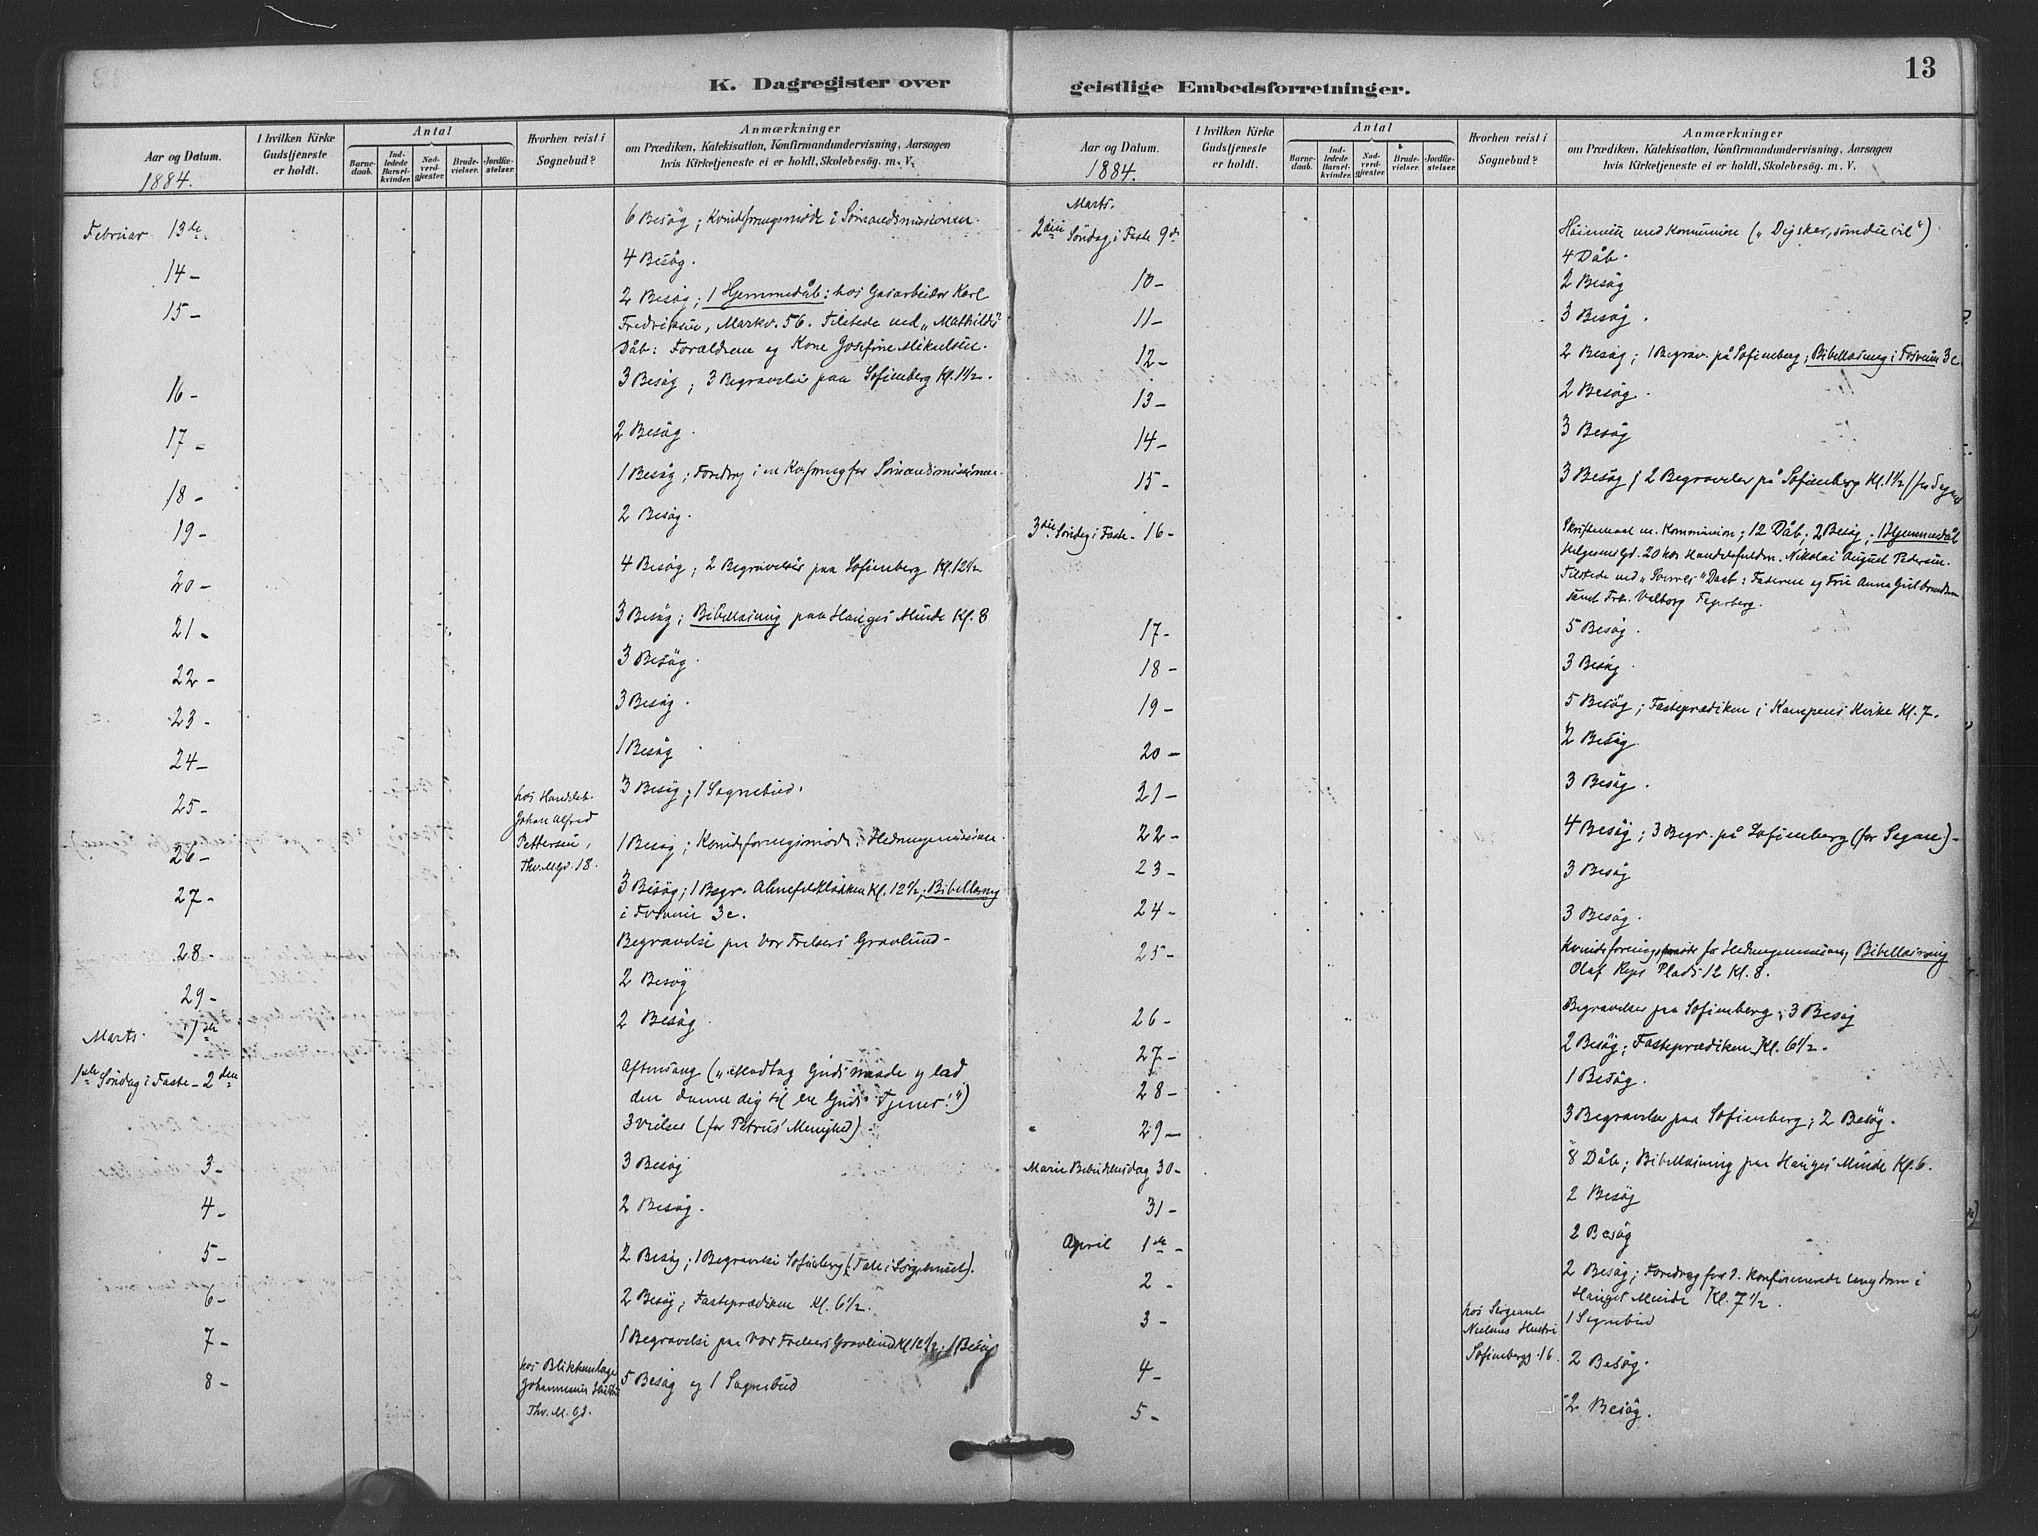 K. Dagregister over
Aar og Datum.
1884.
I hvilken Kirke Gudstjeneste er holdt.
Antal
Barnedaab.
Indledede Barselkvinder.
Nadverdgjæster.
Brudevielser.
Jordfæstelser.
Hvorhen reist i Sognebud?
Anmærkninger
om Prædiken, Katekisation, Konfirmandundervisning, Aarsagen
hvis Kirketjeneste ei er holdt, Skolebesög. m. V.
Februar 13de 6 Besög; Kvindeforeningsmöde i Sömandsmissionen.
14 - 4 Besög.
15 - 2 Besög; 1 Hjemmedåb: hos Gasarbeider Karl
Fredriksen, Markv. 56. Tilstede ved „Mathildes"
Dåb: Forældrene og Kone Josefine Mikelsen.
16 - 3 Besög; 3 Begravelser paa Sofienberg Kl. 1½.
17 - 2 Besög.
18 - 1 Besög; Foredrag i en Kv.forening for Sömandsmissionen.
19 - 2 Besög.
20 - 4 Besög; 2 Begravelser paa Sofienberg Kl. 12½
21 - 3 Besög; Bibellæsning paa Hauges Minde Kl. 8
22 - 3 Besög.
23 - 3 Besög.
24 - 1 Besög
25 - 3 Besög; 1 Sognebud.
hos Handelsb.
Johan Alfred
Pettersen,
Thv. Mgd. 18.
26 - 1 Besög; Kvindeforeningsmöde i Hedningemissionen
27 - 3 Besög; 1 Begr. Almefeldtløkken Kl. 12½; Bibellæsning
i Fosveien 3c.
28 - Begravelse paa Vor Frelsers Gravlund -
29 - 2 Besög
Marts. 1ste 2 Besög
1ste Söndag i Faste - 2den Aftensang („Modtag Guds naade og lad
den danne dig til en Guds Tjener!")
3 Vielser (for Petrus' Menighed)
3 - 3 Besög
4 - 2 Besög.
5 - 2 Besög; 1 Begravelse Sofienberg (Tale i Sörgehuset).
6 - 2 Besög; Fasteprædiken Kl. 6½.
7 - 1 Begravelse paa Vor Frelsers Gravlund Kl 12½; 1 Besög
8 - 5 Besög og 1 Sognebud
hos Blikkenslager
Johannesens Hustru
Thv. M. Gd.
geistlige Embedsforretninger.
13
Aar og Datum.
1884.
I hvilken Kirke Gudstjeneste er holdt.
Antal
Barnedaab.
Indledede Barselkvinder.
Nadverdgjæster.
Brudevielser.
Jordfæstelser.
Hvorhen reist i Sognebud?
Anmærkninger
om Prædiken, Katekisation, Konfirmandundervisning, Aarsagen
hvis Kirketjeneste ei er holdt, Skolebesög. m. V.
Marts.
2den Söndag i Faste 9de Höimesse med Kommunion („Dig sker, som du vil")
4 Dåb.
10 - 2 Besög
11 - 3 Besög.
12 - 2 Besög; 1 Begrav. på Sofienberg; Bibellæsning i Fosveien 3c.
13 - 2 Besög.
14 - 3 Besög
15 - 3 Besög; 2 Begravelser på Sofienberg Kl. 1½ (for Sagene
3die Söndag i Faste - 16 - Skriftemaal m. Kommunion; 12 Dåb; 2 Besög; 1 Hjemmedåb
Helgesens Gd. 20 hos Handelsfuldm. Nikolai August Pedersen.
Tilstede ved Daab: Faderen og Frue Anna Gulbrandsen
samt Frk. Valborg
17 - 5 Besög.
18 - 3 Besög.
19 - 5 Besög; Fasteprædiken i Kampens Kirke Kl. 7.
20 - 2 Besög
21 - 3 Besög.
22 - 4 Besög; 3 Begr. på Sofienberg (for Sagene) -
23 - 3 Besög
24 - 3 Besög.
25 - Kvindeforeningsmöde for Hedningemissionen, Bibellæsning
Olaf Ryes Plads 12 Kl. 8.
26 - Begravelser paa Sofienberg; 3 Besög
27 - 2 Besög; Fasteprædiken Kl. 6½.
28 - 1 Besög.
29 - 3 Begravelser paa Sofienberg; 2 Besög.
Marie Bebudelsesdag 30 - 8 Dåb; Bibellæsning paa Hauges Minde Kl. 6.
31 - 2 Besög
April 1ste - 2 Besög
2 - 2 Besög; Foredrag for d. konfirmerede Ungdom i
Hauges Minde Kl. 7½.
3 - 1 Sognebud
hos Sergeant
Nielsens Hustru
Sofienbergg. 16.
4 - 2 Besög.
5 - 2 Besög.